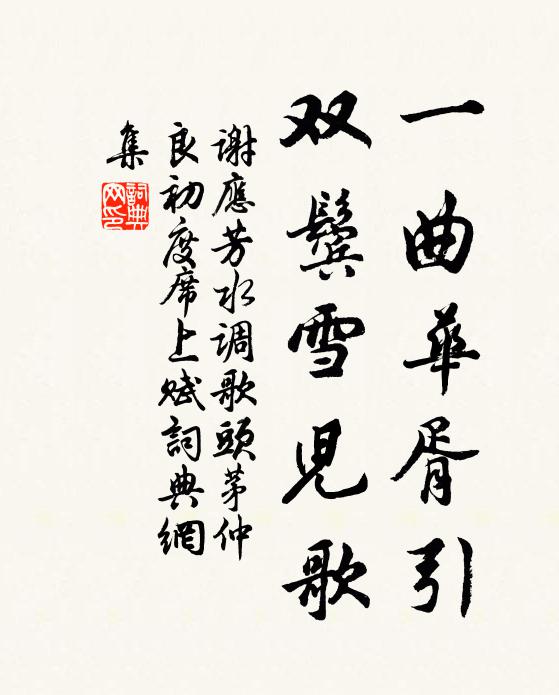 一曲華胥引
双鬓雪児歌
謝應芳水調歌頭茅仲
良初度席上赋詞典網
集
詞典网印